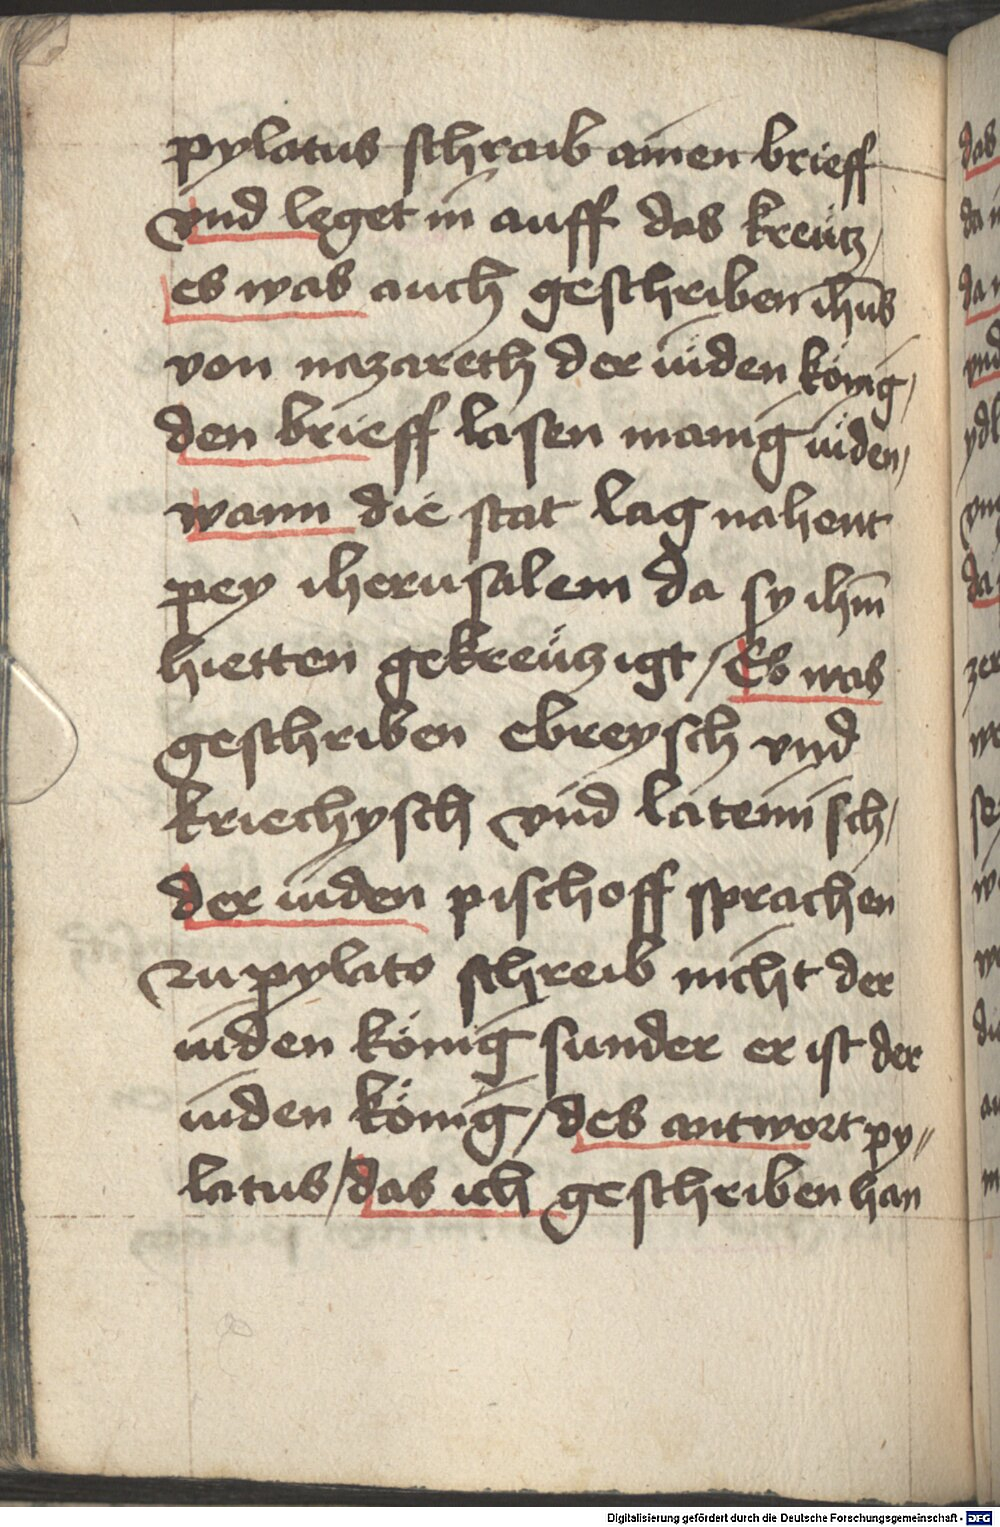 pylatus schraib ainen brieff
vnd leget in auff das kreütz /
es was auch geschriben ihūs
von nazareth der iüden König /
den brieff lasen manig iüden /
wann die stat lag nahent
pey iherusalem da sy ihm̄
hietten gekreützigt / Es was
geschriben ebreysch vnd
kriechysch vnd lateinisch /
der iuden pischoff sprachen
zu pylato schreib nicht der
iüden König sunder er ist der
iüden König / des antwort py//
latus / das ich geschriben han
Digitalisierung gefördert durch die Deutsche Forschungsgemeinschaft - DFG